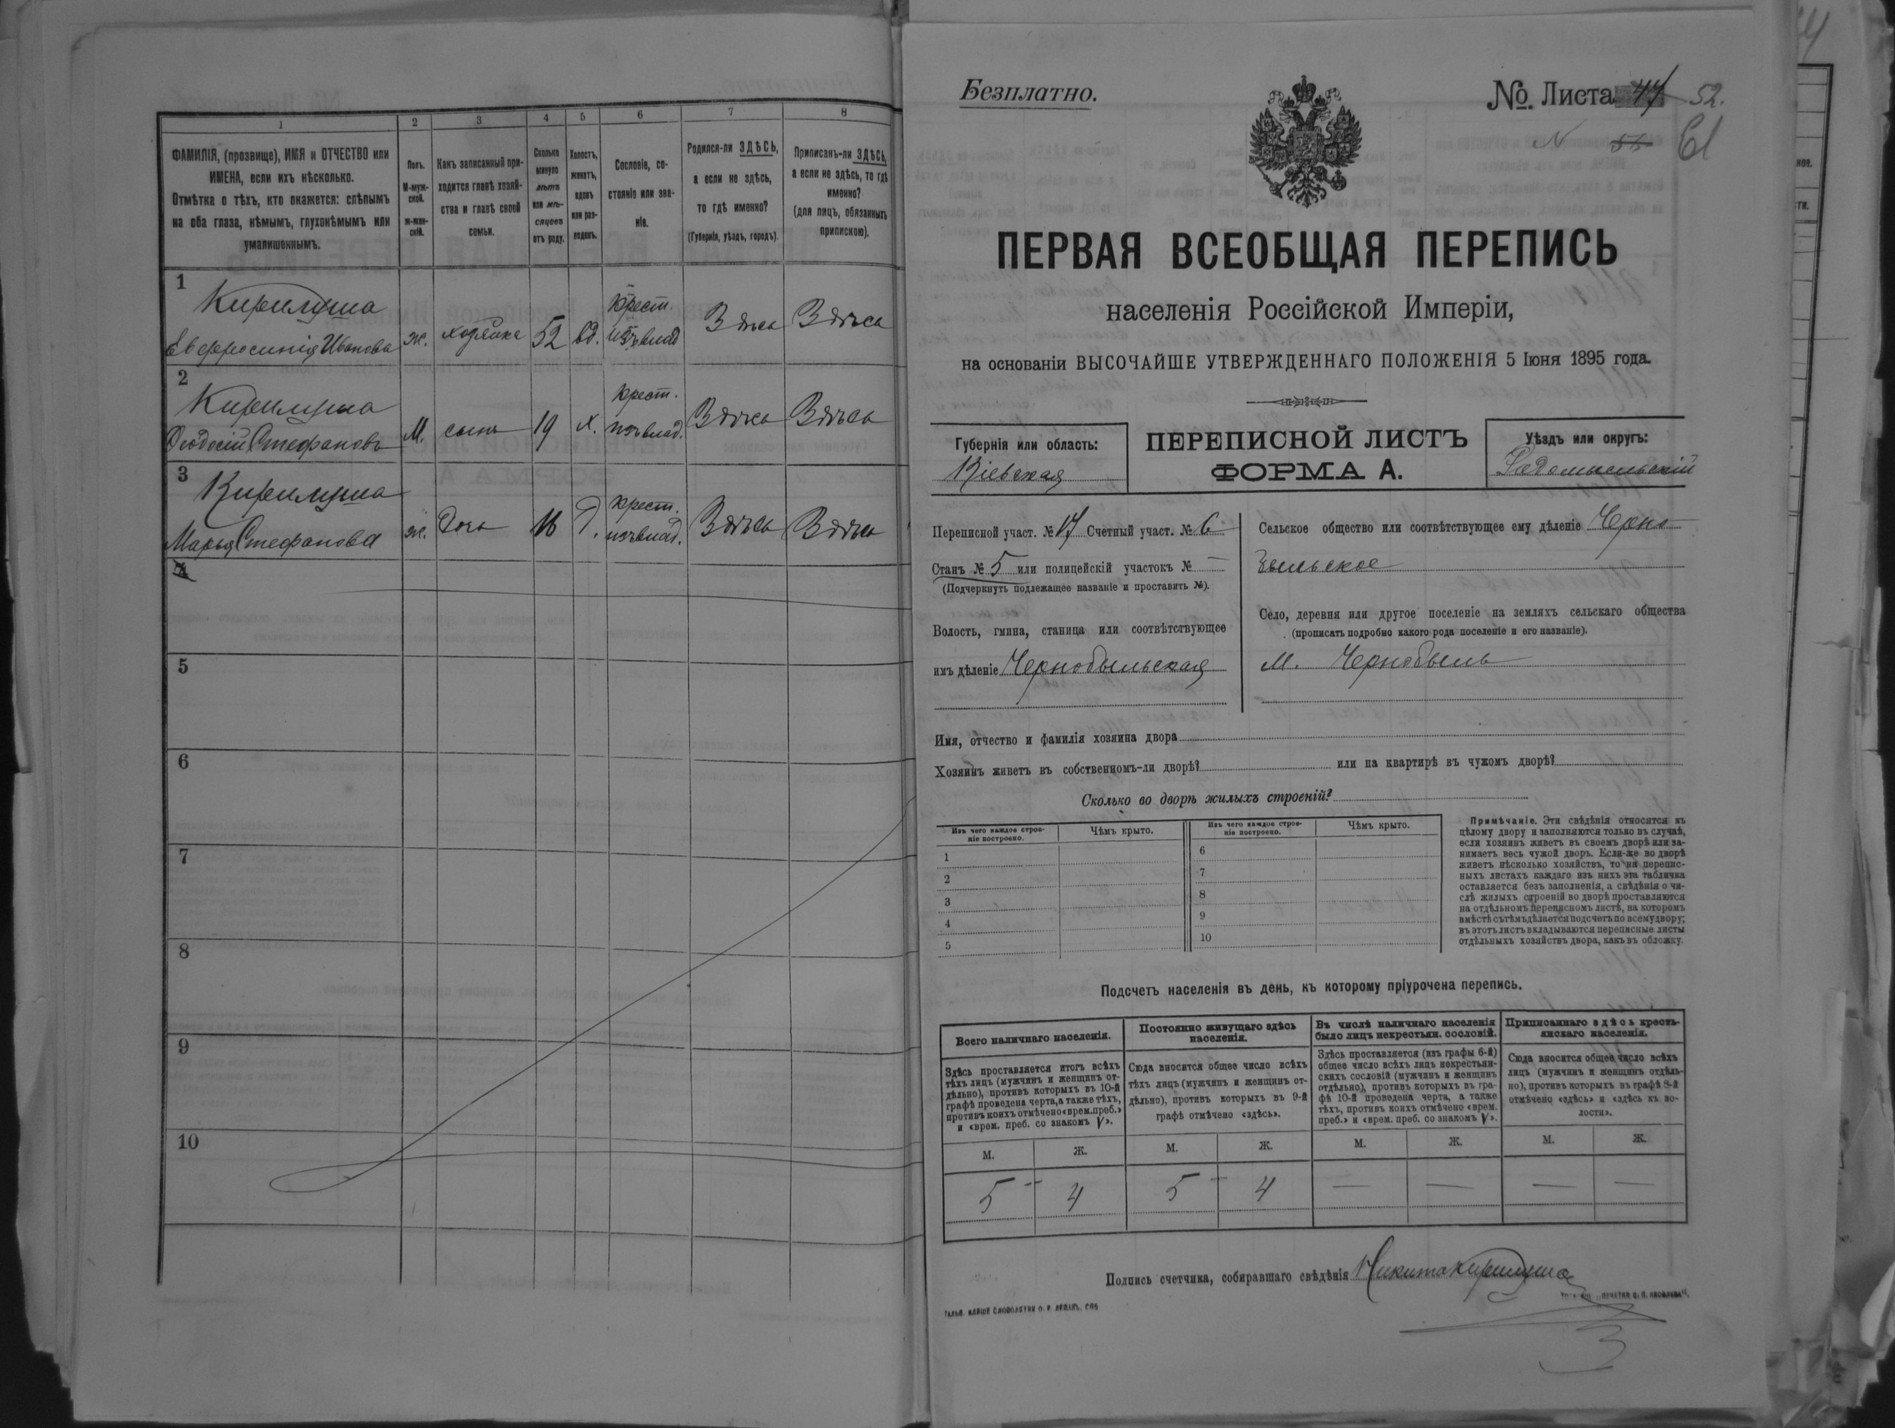 1 2 3 4 5 6 7 8
ФАМИЛІЯ, (прозвище), ИМЯ и ОТЧЕСТВО или
ИМЕНА, если ихъ нѣсколько.
Отмѣтка о тѣхъ, кто окажется: слѣпымъ
на оба глаза, нѣмымъ, глухонѣмымъ или
умалишеннымъ.
Полъ.
М-муж-
ской.
ж-жен-
скій.
Какъ записанный при-
ходится главѣ хозяй-
ства и главѣ своей
семьи.
Сколько
минуло
лѣтъ
или мѣ-
сяцевъ
отъ роду.
Холостъ,
женатъ,
вдовъ
или раз-
веденъ.
Сословіе, со-
стояніе или зва-
ніе.
Родился-ли ЗДѢСЬ,
а если не здѣсь,
то гдѣ именно?
(Губернія, уѣздъ, городъ).
Приписанъ-ли ЗДѢСЬ,
а если не здѣсь, то гдѣ
именно?
(для лицъ, обязанныхъ
припискою).
1
Кирилуша
Евфросинія Иванова ж. хозяйка 52 вд. крест. изъ влад Здѣсь Здѣсь
2
Кирилуша
Ѳеодосій Стефановъ М. сынъ 19 х. крест. изъ влад. Здѣсь Здѣсь
3
Кирилуша
Марья Стефанова ж. дочь 16 д. крест. изъ влад. Здѣсь Здѣсь
4
5
6
7
8
9
10
Безплатно.
№ Листа 47 52.
ПЕРВАЯ ВСЕОБЩАЯ ПЕРЕПИСЬ
населенія Россійской Имперіи,
на основаніи ВЫСОЧАЙШЕ УТВЕРЖДЕННАГО ПОЛОЖЕНІЯ 5 Іюня 1895 года.
Губернія или область:
Кіевская
ПЕРЕПИСНОЙ ЛИСТЪ
ФОРМА А.
Уѣздъ или округъ:
Радомысльскій
Переписной участ. № 17 Счетный участ. № 6
Станъ № 5 или полицейскій участокъ № —
(Подчеркнуть подлежащее названіе и проставить №).
Волость, гмина, станица или соотвѣтствующее
имъ дѣленіе Чернобыльская
Сельское общество или соотвѣтствующее ему дѣленіе Черно
быльское
Село, деревня или другое поселеніе на земляхъ сельскаго общества
(прописать подробно какого рода поселеніе и его названіе).
м. Чернобыль
Имя, отчество и фамилія хозяина двора
Хозяинъ живетъ въ собственномъ-ли дворѣ? или на квартирѣ въ чужомъ дворѣ?
Сколько во дворѣ жилыхъ строеній?
Изъ чего каждое строе-
ніе построено.
Чѣмъ крыто.
Изъ чего каждое строе-
ніе построено.
Чѣмъ крыто.
1 6
2 7
3 8
4 9
5 10
Примѣчаніе. Эти свѣдѣнія относятся къ
цѣлому двору и заполняются только въ случаѣ,
если хозяинъ живетъ въ своемъ дворѣ или за-
нимаетъ весь чужой дворъ. Если-же во дворѣ
живетъ нѣсколько хозяйствъ, то на перепис-
ныхъ листахъ каждаго изъ нихъ эта табличка
оставляется безъ заполненія, а свѣдѣнія о чи-
слѣ жилыхъ строеній во дворѣ проставляются
на отдѣльномъ переписномъ листѣ, на которомъ
вмѣстѣ съ тѣмъ дѣлается подсчетъ по всему двору;
въ этотъ листъ вкладываются переписные листы
отдѣльныхъ хозяйствъ двора, какъ въ обложку.
Подсчетъ населенія въ день, къ которому пріурочена перепись.
Всего наличнаго населенія.
Здѣсь проставляется итогъ всѣхъ
тѣхъ лицъ (мужчинъ и женщинъ от-
дѣльно), противъ которыхъ въ 10-й
графѣ проведена черта, а также тѣхъ,
противъ коихъ отмѣчено «врем. преб.»
и «врем. преб. со знакомъ V».
Постоянно живущаго здѣсь
населенія.
Сюда вносится общее число всѣхъ
тѣхъ лицъ (мужчинъ и женщинъ от-
дѣльно), противъ которыхъ въ 9-й
графѣ отмѣчено «здѣсь».
Въ числѣ наличнаго населенія
было лицъ некрестьян. сословій.
Здѣсь проставляется (изъ графы 6-й)
общее число всѣхъ лицъ некрестьян-
скихъ сословій (мужчинъ и женщинъ
отдѣльно), противъ которыхъ въ гра-
фѣ 10-й проведена черта, а также
тѣхъ, противъ коихъ отмѣчено «врем.
преб.» и «врем. преб. со знакомъ V».
Приписаннаго здѣсь кресть-
янскаго населенія.
Сюда вносится общее число всѣхъ
лицъ (мужчинъ и женщинъ отдѣль-
но), противъ которыхъ въ графѣ 8-й
отмѣчено «здѣсь» и «здѣсь въ во-
лости».
М. Ж. М. Ж. М. Ж. М. Ж.
5 4 5 4 — — — —
Подпись счетчика, собиравшаго свѣдѣнія Никита Кирилуша